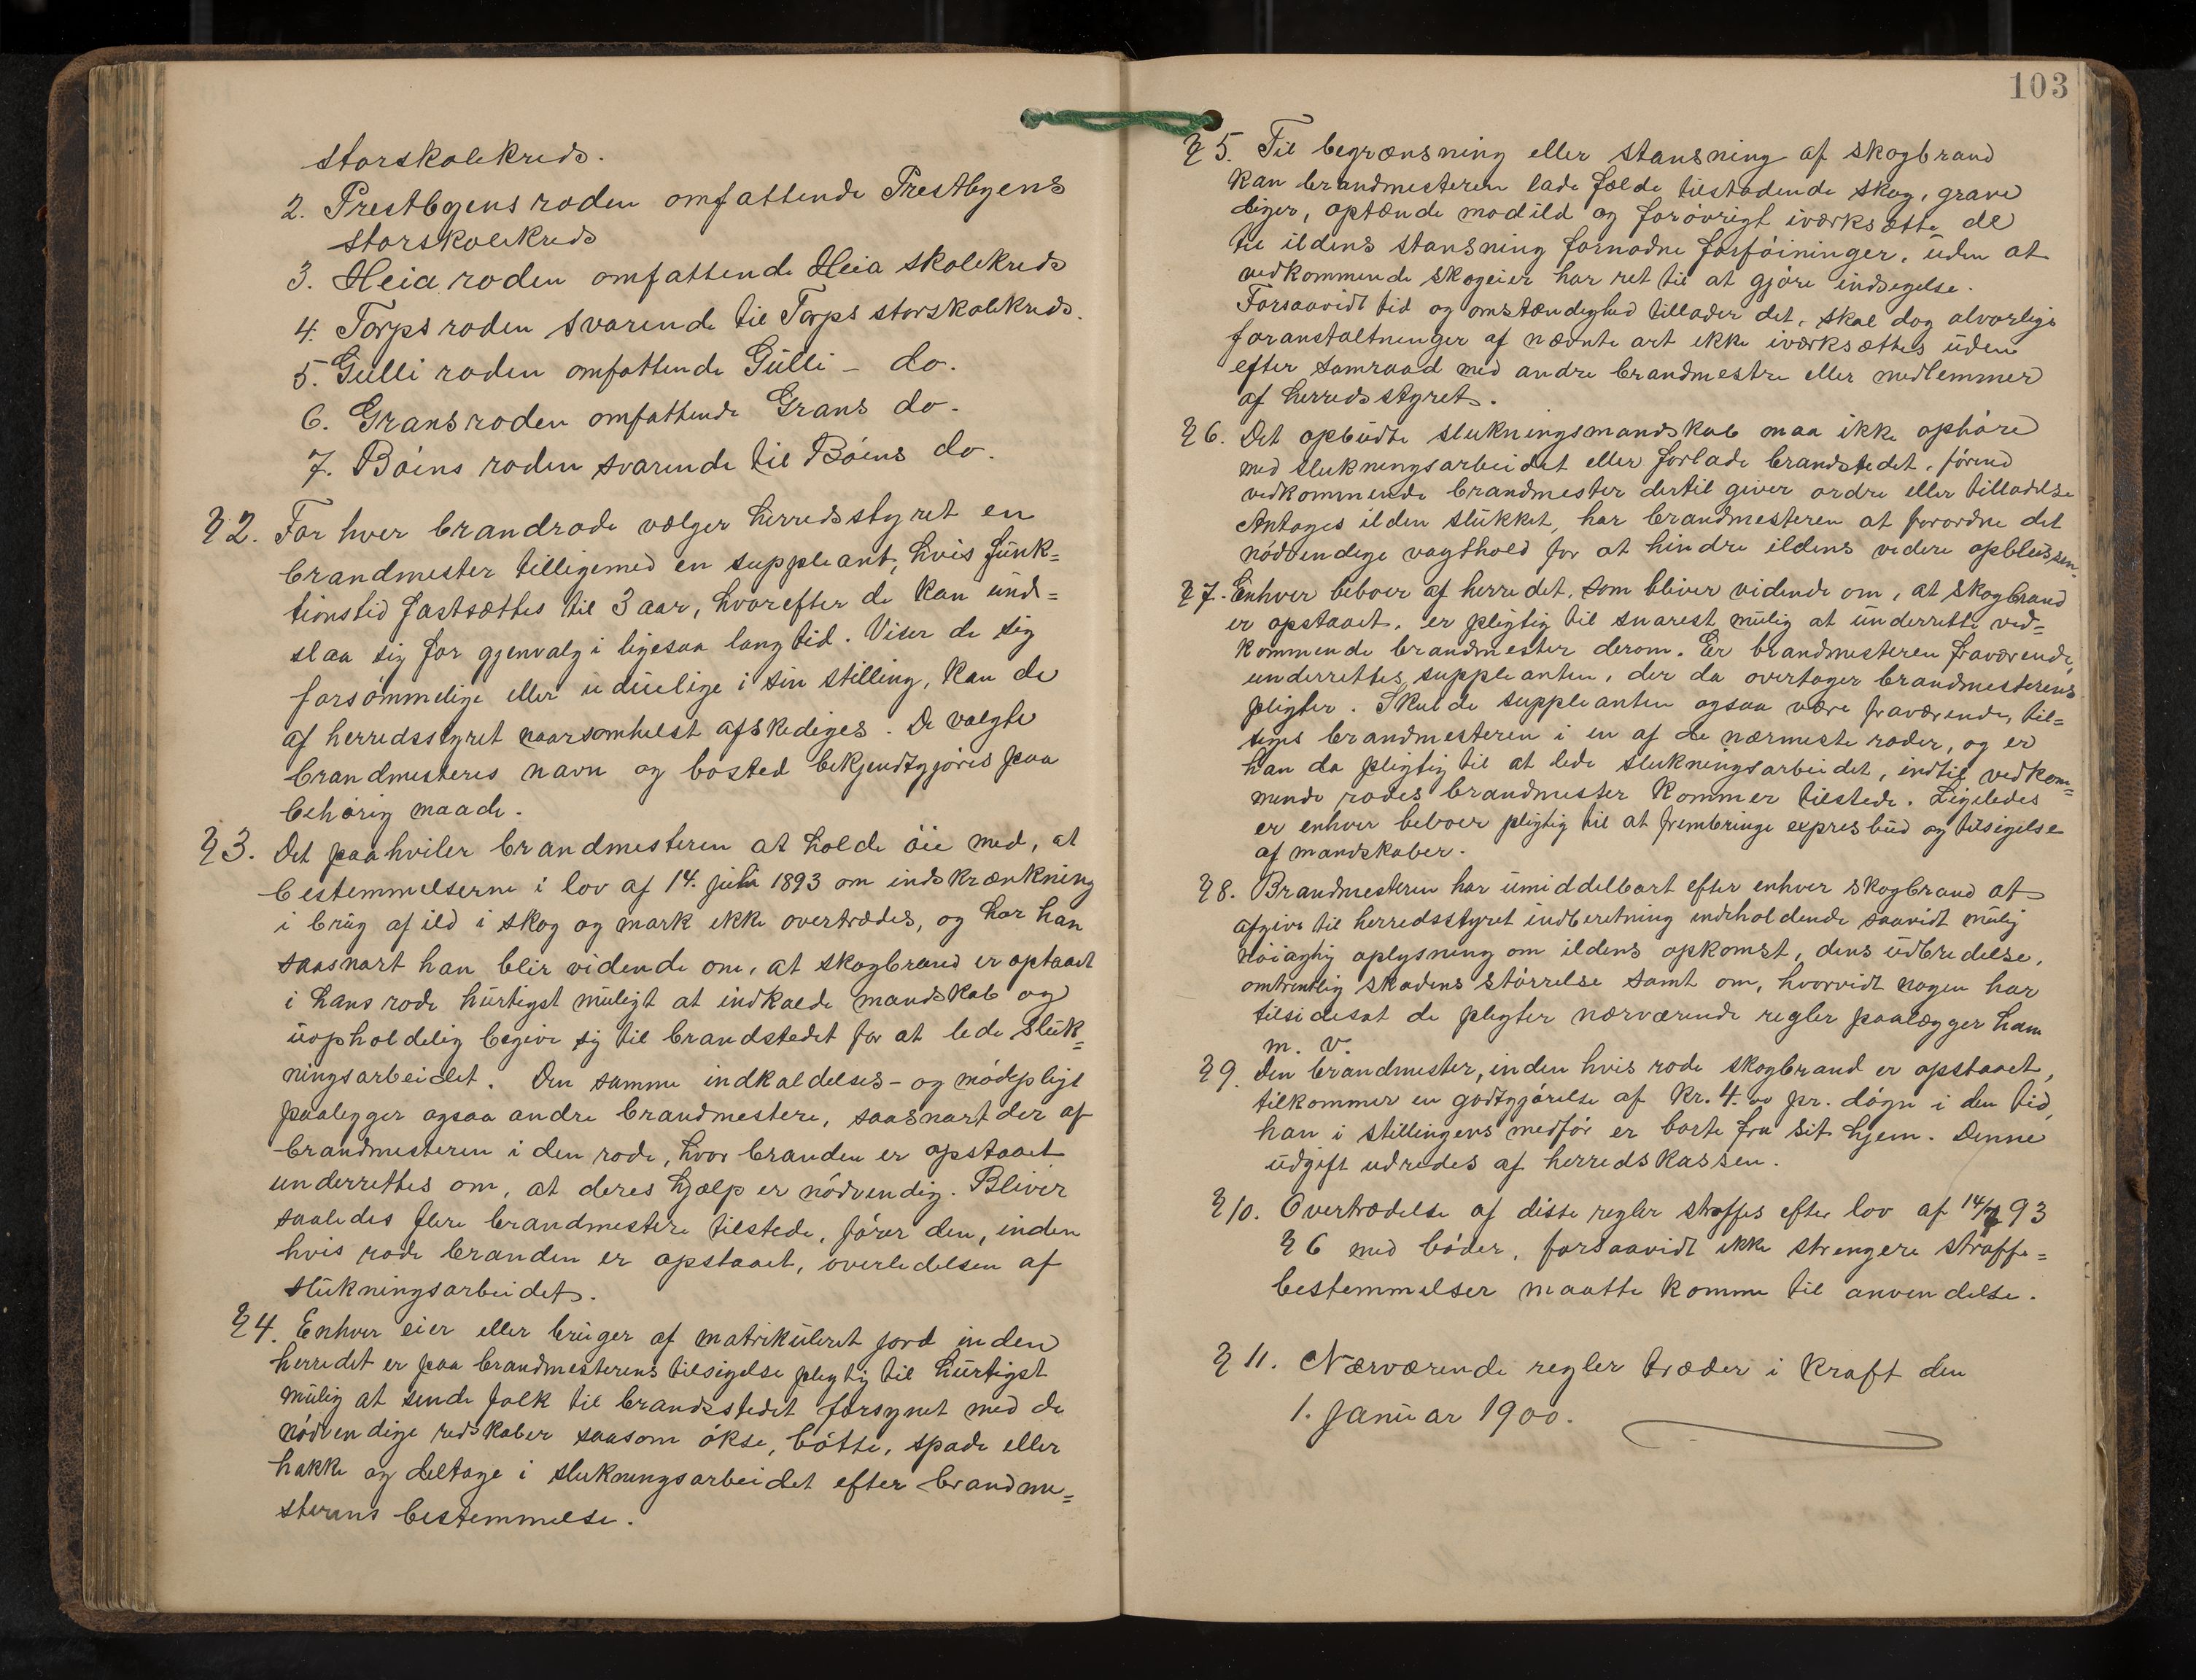 storskolekreds.
2. Prestbyens roden omfattende Prestbyens
storskolekreds
3. Heia roden omfattende Heia skolekreds
4. Torps roden svarende til Torps storskolekreds.
5. Gulli roden omfattende Gulli - do.
6. Grans roden omfattende Grans do.
7. Böins roden svarende til Böins do.
§ 2. For hver brandrode vælger herredsstyret en
brandmester tilligemed en suppleant, hvis funk=
tionstid fastsættes til 3 aar, hvorefter de kan und=
slaa sig for gjenvalg i ligesaa lang tid. Viser de sig
forsömmelige eller uduelige i sin stilling, kan de
af herredsstyret naarsomhelst afskediges. De valgte
brandmesteres navn og bosted bekjendtgjöres paa
behörig maade.
§ 3. Det paahviler brandmesteren at holde öie med, at
bestemmelserne i lov af 14. juli 1893 om indskrænkning
i brug af ild i skog og mark ikke overtrædes, og har han
saasnart han blir vidende om, at skogbrand er opstaaet
i hans rode hurtigst muligt at indkalde mandskab og
uopholdelig begive sig til brandstedet for at lede sluk=
ningsarbeidet. Den samme indkaldelses- og mödepligt
paaligger ogsaa andre brandmestere, saasnart der af
brandmesteren i den rode, hvor branden er opstaaet
underrettes om, at deres hjælp er nödvendig. Bliver
saaledes flere brandmestere tilstede, förer den, inden
hvis rode branden er opstaaet, overledelsen af
slukningsarbeidet.
§ 4. Enhver eier eller bruger af matrikuleret jord inden
herredet er paa brandmesterens tilsigelse pligtig til hurtigst
mulig at sende folk til brandsstedet forsynet med de
nödvendige redskaber saasom ökse, bötte, spade eller
hakke og deltage i slukningsarbeidet efter brandme=
sterens bestemmelse.
103
§ 5. Til begrænsning eller stansning af skogbrand
kan brandmesteren lade fælde tilstödende skog, grave
diger, optænde modild og forövrigt iværksætte de
til ildens stansning fornödne forföininger, uden at
vedkommende skogeier har ret til at gjöre indsigelse.
Forsaavidt tid og omstændighed tillader det, skal dog alvorlige
foranstaltninger af nævnte art ikke iværksættes uden
efter samraad med andre brandmestre eller medlemmer
af herredsstyret.
§ 6. Det opbudte slukningsmandskab maa ikke ophöre
med slukningsarbeidet eller forlade brandstedet, förend
vedkommende brandmester dertil giver ordre eller tilladelse
Antages ilden slukket, har brandmesteren at forordne det
nödvendige vagthold for at hindre ildens videre opblussen.
§ 7. Enhver beboer af herredet, som bliver vidende om, at skogbrand
er opstaaet, er pligtig til snarest mulig at underrette ved=
kommende brandmester derom. Er brandmesteren fraværende,
underrettes suppleanten, der da overtager brandmesterens
pligter. Skulde suppleanten ogsaa være fraværende, til=
siges brandmesteren i en af de nærmeste roder, og er
han da pligtig til at lede slukningsarbeidet, indtil vedkom=
mende rodes brandmester kommer tilstede. Ligeledes
er enhver beboer pligtig til at frembringe expresbud og tilsigelse
af mandskaber.
§ 8. Brandmesteren har umiddelbart efter enhver skogbrand at
afgive til herredsstyret indberetning indeholdende saavidt mulig
nöiagtig oplysning om ildens opkomst, dens udbredelse,
omtrentlig skadens störrelse samt om, hvorvidt nogen har
tilsidesat de pligter nærværende regler paalægger ham
m. v.
§ 9. Den brandmester, inden hvis rode skogbrand er opstaaet,
tilkommer en godtgjörelse af kr. 4.00 pr. dögn i den tid,
han i stillingens medför er borte fra sit hjem. Denne
udgift udredes af herredskassen.
§ 10. Overtrædelse af disse regler straffes efter lov af 14/7 93
§ 6 med böder, forsaavidt ikke strengere straffe=
bestemmelser maatte komme til anvendelse.
§ 11. Nærværende regler træder i kraft den
1. januar 1900.